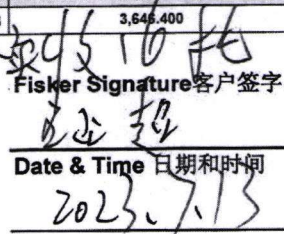 3,646.400
实收16托
Fisker Signature客户签字
Date & Time 日期和时间
2023、7、13